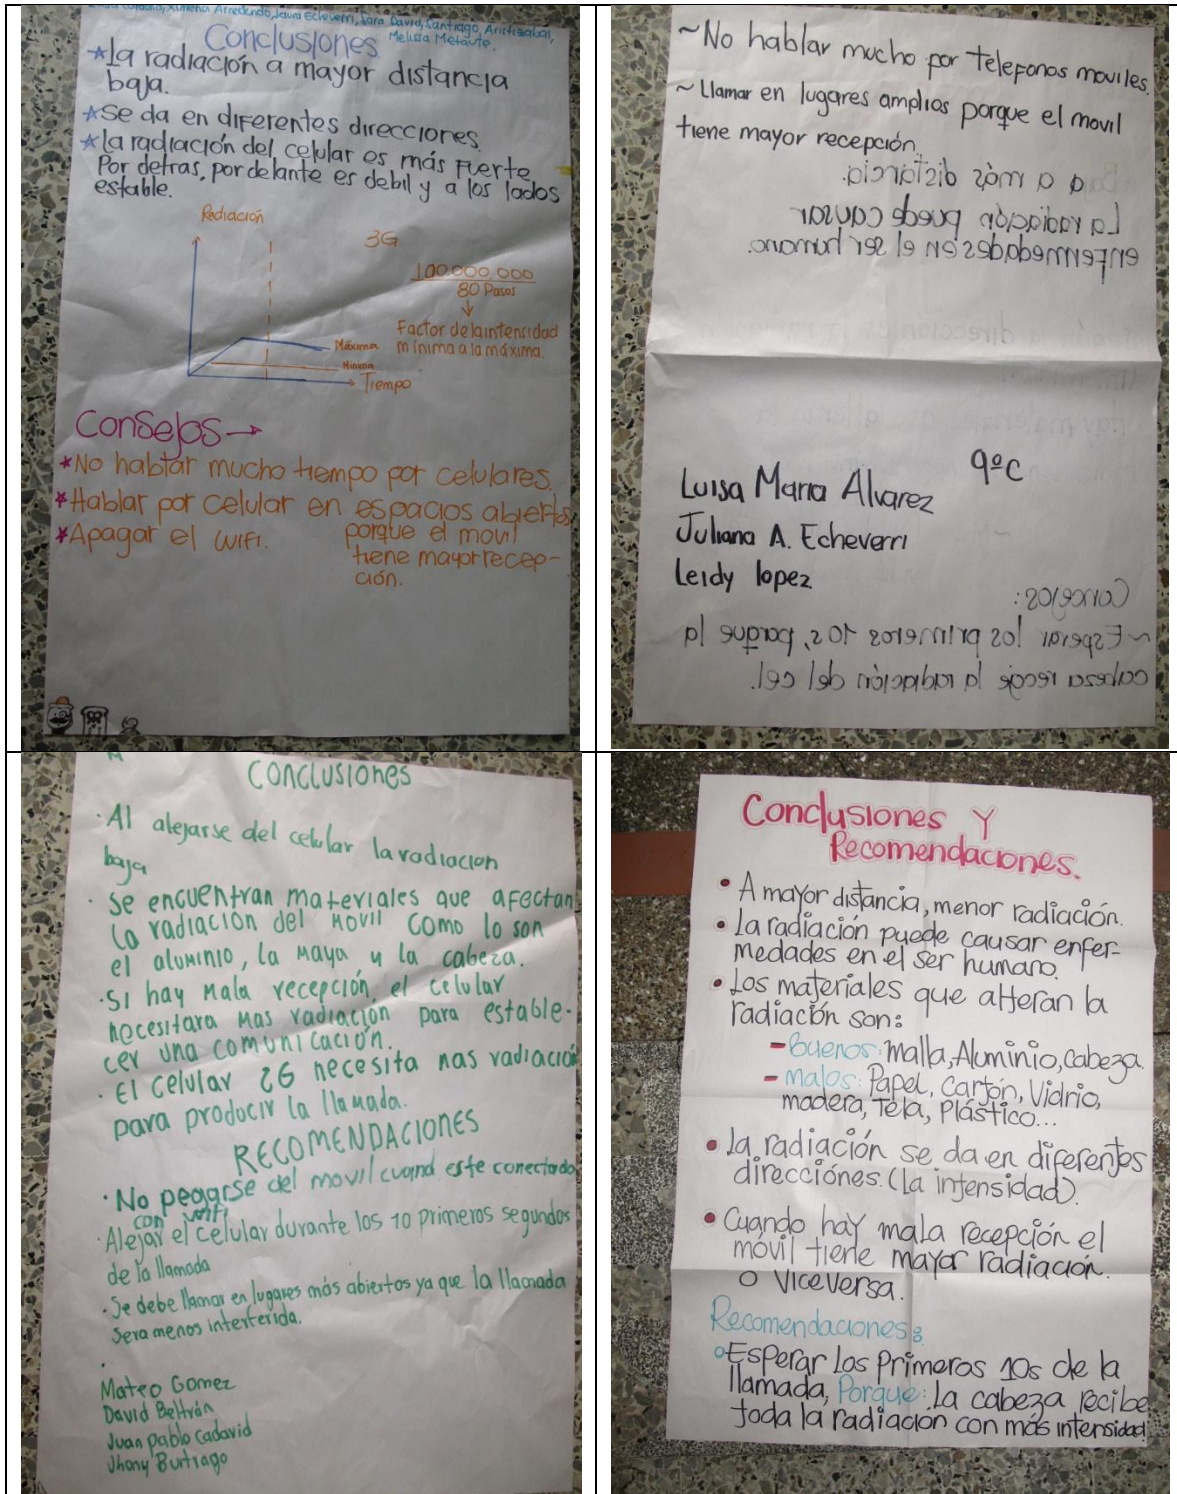 Ximena Arredondo, Laura Echeverri, Sara David, Santiago Aristizabal,
Melissa Metaute.
Conclusiones
*La radiación a mayor distancia
baja.
*Se da en diferentes direcciones.
*La radiación del celular es más fuerte
Por detras, por delante es debil y a los lados
estable.
Radiación
3G
100.000.000
80 Pasos
Factor de la intensidad
mínima a la máxima.
Máxima
Minima
Tiempo
Consejos→
*No hablar mucho tiempo por celulares.
*Hablar por celular en espacios abiertos
porque el movil
tiene mayor recep-
ción.
*Apagar el wifi.
~No hablar mucho por telefonos moviles.
~Llamar en lugares amplios porque el movil
tiene mayor recepción.
a a más distancia.
La radiación puede causar
enfermedades en el ser humano.
9ºC
Luisa Maria Alvarez
Juliana A. Echeverri
Leidy lopez
Concejos:
~Esperar los primeros 10s, porque la
cabeza recoje la radiación del cel.
Conclusiones
·Al alejarse del celular la radiacion
baja
·Se encuentran materiales que afectan
la radiación del movil como lo son
el aluminio, la maya y la cabeza.
·Si hay mala recepción, el celular
necesitara mas radiación para estable-
cer una comunicación.
·El celular 2G necesita nas radiación
para producir la llamada.
RECOMENDACIONES
·No pegarse del movil cuand este conectado
con wifi
·Alejar el celular durante los 10 primeros segundos
de la llamada
·Se debe llamar en lugares más abiertos ya que la llamada
sera menos interferida.
Mateo Gomez
David Beltrán
Juan pablo cadavid
Jhony Buitrago
Conclusiones Y
Recomendaciones.
•A mayor distancia, menor radiación.
•La radiación puede causar enfer-
medades en el ser humano.
•Los materiales que alteran la
radiación son:
-Buenos: malla, Aluminio, cabeza.
-malos: Papel, Cartón, Vidrio,
madera, Tela, Plástico...
•La radiación se da en diferentes
direcciónes. (La intensidad).
•Cuando hay mala recepción el
móvil tiene mayor radiación.
o Viceversa.
Recomendaciones:
°Esperar Los Primeros 10s de la
llamada, Porque: La cabeza recibe
toda la radiación con más intensidad